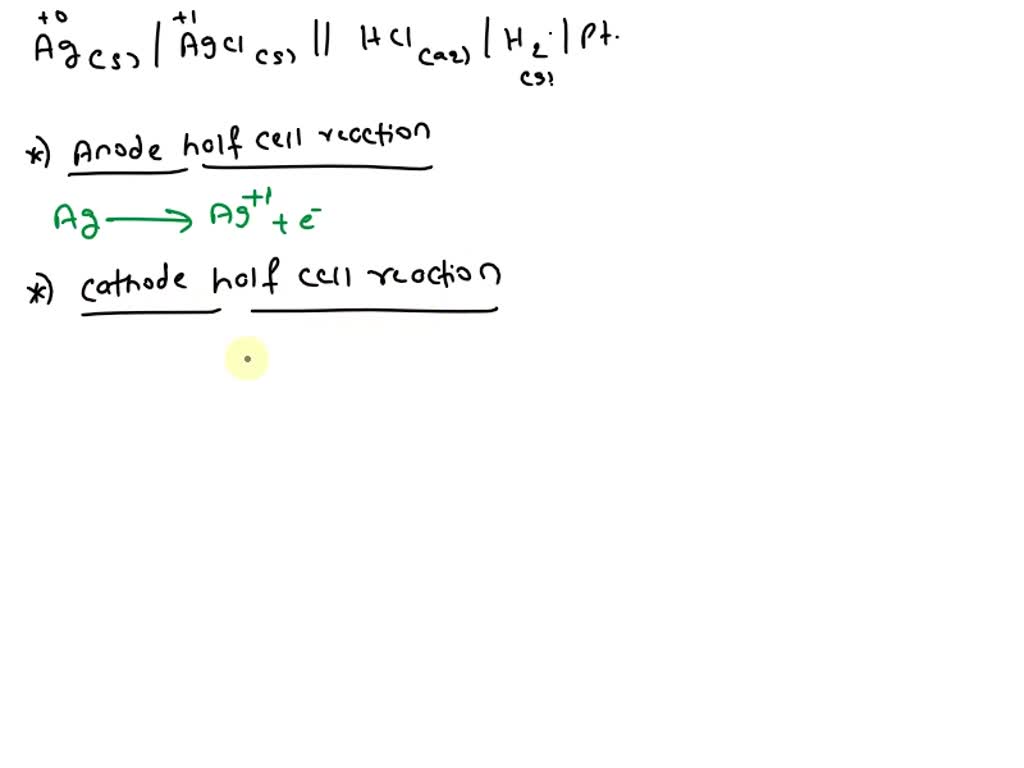 +0 +1
Ag(s) | AgCl(s) || HCl(aq) | H2 | Pt.
(g)
*) Anode half cell reaction
Ag ⟶ Ag+1 + e-
*) cathode half cell reaction